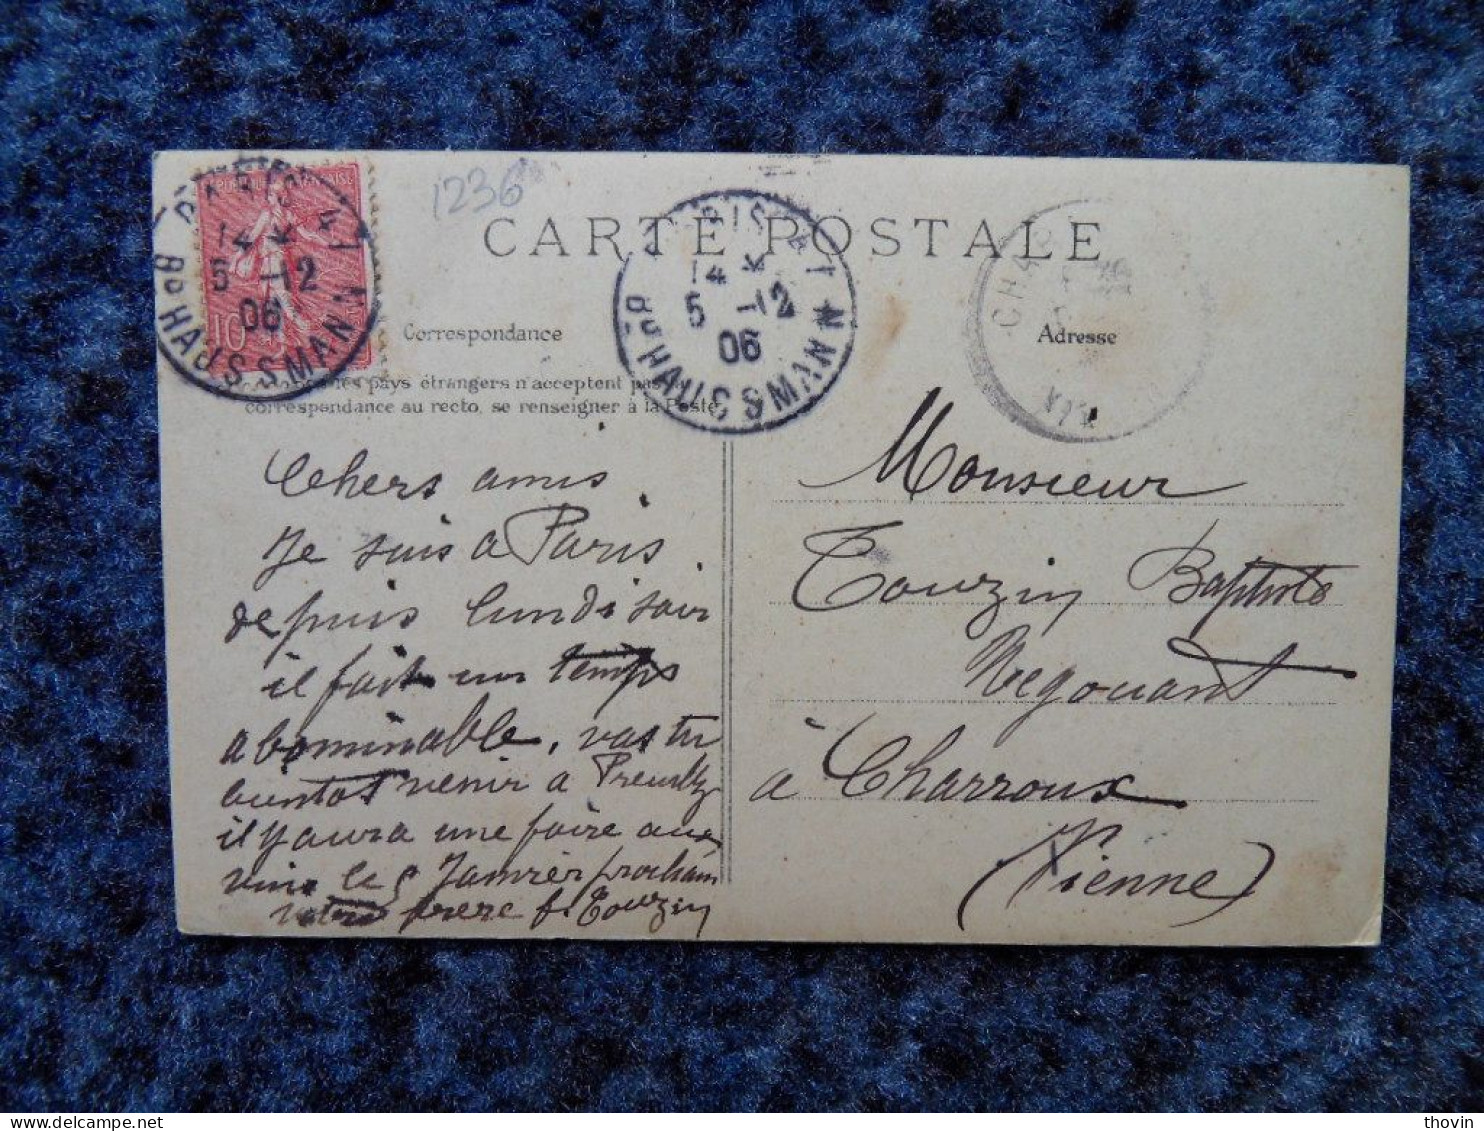 1236
CARTE POSTALE
Correspondance
Adresse
les pays étrangers n'acceptent pas la
correspondance au recto, se renseigner à la Poste
PARIS 41
14
5 -12
06
Bd HAUSSMANN
10
PARIS 41
14
5 -12
06
Bd HAUSSMANN
Chers amis
Je suis a Paris
depuis lundi soir
il fait un temps
abominable, vas tu
bientot venir a
il y aura une foire aux
vins le 5 Janvier prochain
votre frere f. Touzin
Monsieur
Touzin Baptiste
Negociant
à Charroux
(Vienne)
thovin